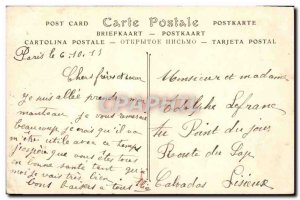 POST CARD Carte Postale POSTKARTE
BRIEFKAART - POSTKAART
CARTOLINA POSTALE - ОТКРЫТОЕ ПИСЬМО - TARJETA POSTAL
Paris le 6.10.11
Cher frère et
je suis allée prendre
manteau je vous remercie
beaucoup je crois qu'il va
m'être utile avec ce temps
J'espère que vous êtes tous
en bonne santé tant que
moi je vais très bien
bons baisers à tous
Monsieur et madame
Adolphe Lefranc
Point du jour
Route du
Calvados Lisieux